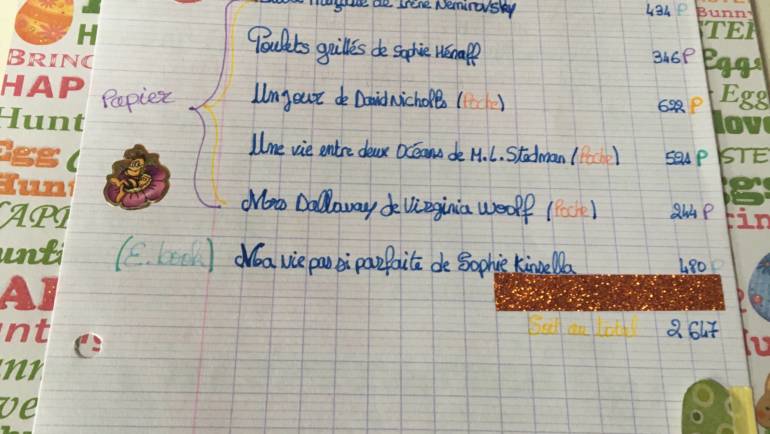 de Irène Nemirovsky 434 P
Poulets grillés de Sophie Hénaff 346 P
Papier
Un jour de David Nicholls (Poche) 622 P
Une vie entre deux Océans de M.L. Stedman (Poche) 521 P
Mrs Dallaway de Virginia Woolf (Poche) 244 P
(E.book) Ma vie pas si parfaite de Sophie Kinsella 480 P
Soit au total 2 647
BRING
HAP
Hunt
Egg
Hunt
Bunn
Eggs
Egg
love
STE